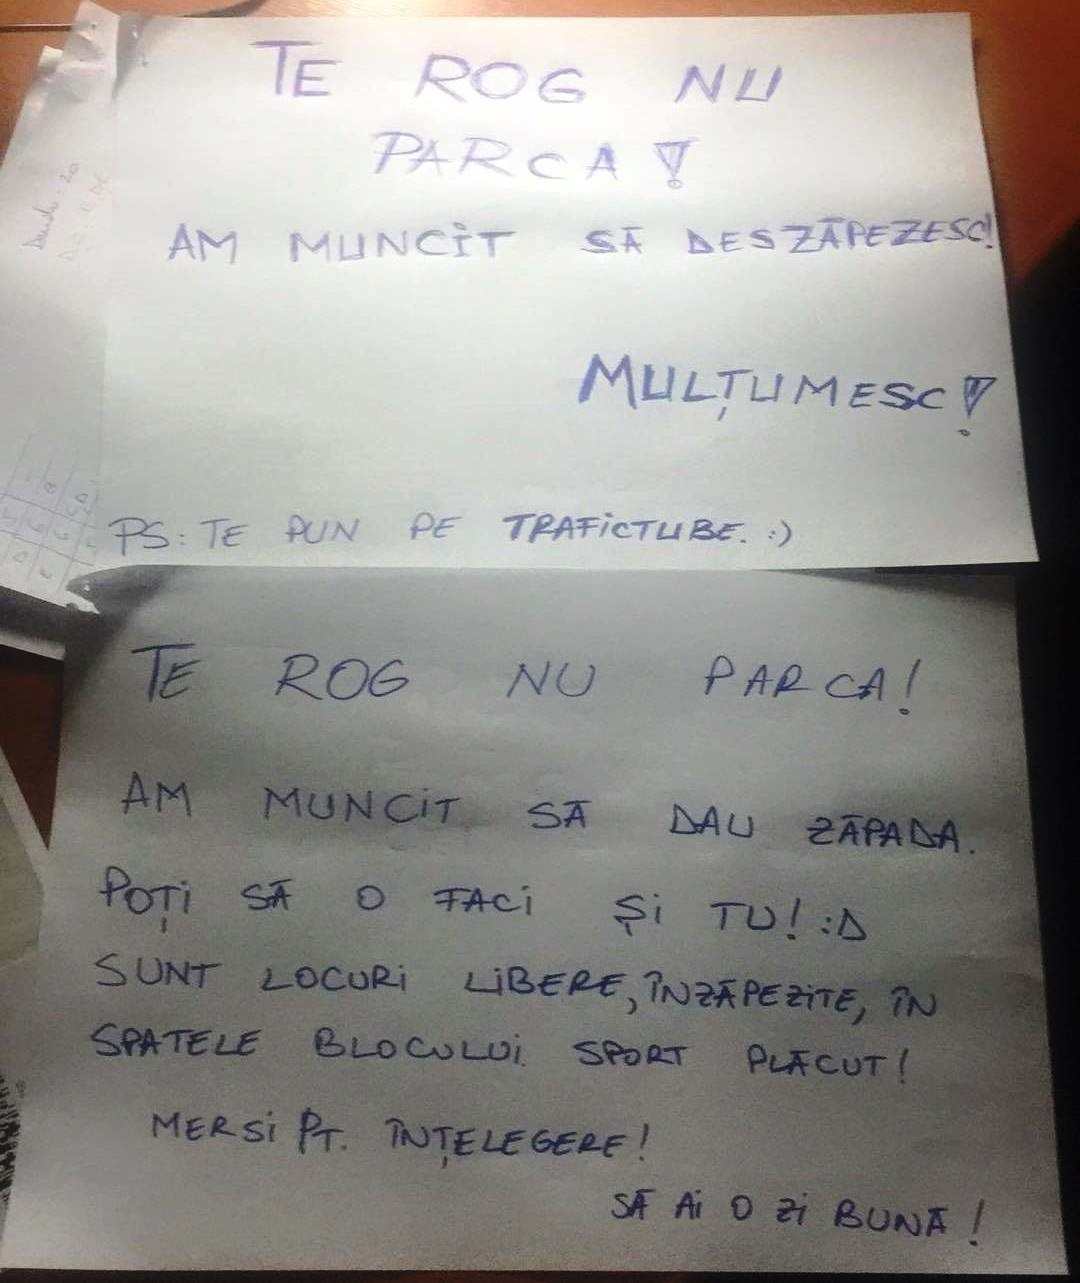 TE ROG NU
PARCA!
AM MUNCIT SĂ DESZĂPEZESC!
MULȚUMESC!
PS: TE PUN PE TRAFICTUBE. :)
TE ROG NU PARCA!
AM MUNCIT SĂ DAU ZĂPADA.
POȚI SĂ O FACI ȘI TU! :D
SUNT LOCURI LIBERE, ÎNZĂPEZITE, ÎN
SPATELE BLOCULUI. SPORT PLĂCUT!
MERSI PT. ÎNȚELEGERE!
SĂ AI O ZI BUNĂ!